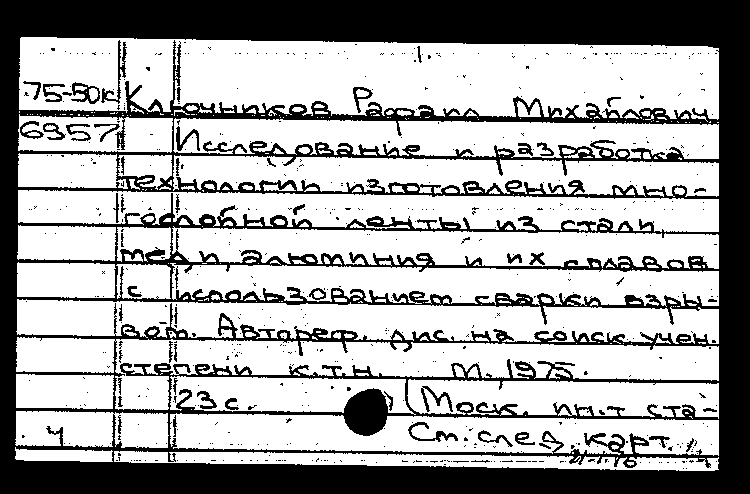 1.
75-50к Ключников Рафаил Михайлович
6957 Исследование и разработка
технологии изготовления мно-
гослойной ленты из стали,
меди, алюминия и их сплавов
с использованием сварки взры-
вом. Автореф. дис. на соиск. учен.
степени к.т.н. М., 1975.
23 с. (Моск. ин-т ста-
ч См. след. карт.